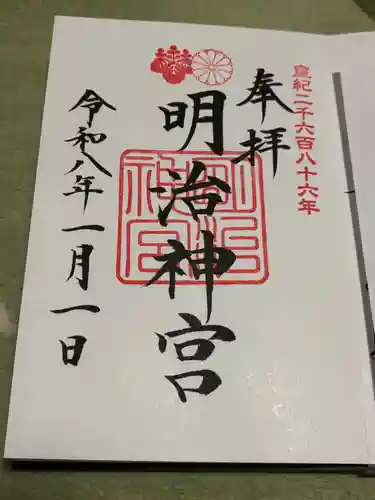 皇紀二千六百八十六年
奉拝
明治神宮
明治
神宮
令和八年一月一日